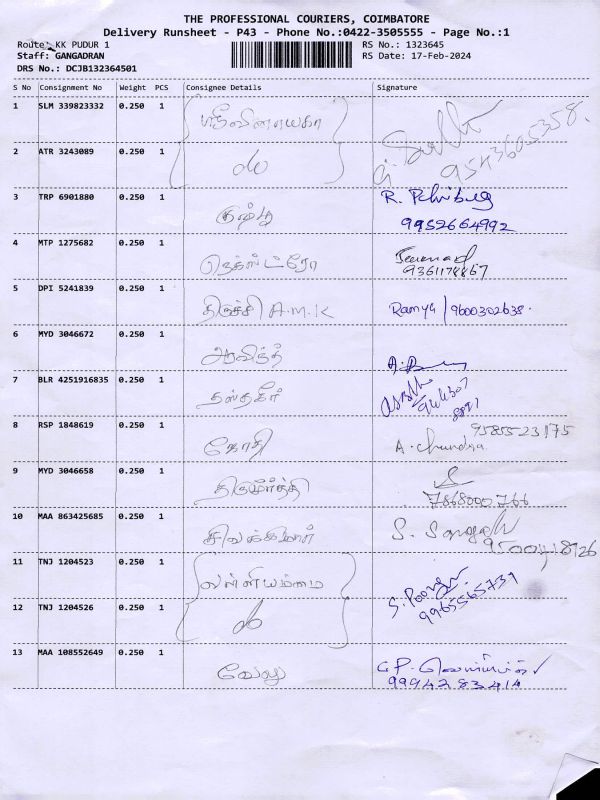 THE PROFESSIONAL COURIERS, COIMBATORE
Delivery Runsheet - P43 - Phone No.:0422-3505555 - Page No.:1
Route: KK PUDUR 1 RS No.: 1323645
Staff: GANGADRAN RS Date: 17-Feb-2024
DRS No.: DCJB132364501
S No Consignment No Weight PCS Consignee Details Signature
1 SLM 339823332 0.250 1 ஸ்ரீவிநாயகா
2 ATR 3243089 0.250 1 do 9543605358.
3 TRP 6901880 0.250 1 குஷ்பூ R.
9952664992
4 MTP 1275682 0.250 1 நெக்ஸ்ட்ரோ
9361178867
5 DPI 5241839 0.250 1 திருச்சி A.M.K Ramya / 9600302638.
6 MYD 3046672 0.250 1 அரவிந்த்
7 BLR 4251916835 0.250 1 தஸ்தகீர்
8 RSP 1848619 0.250 1 ஜோதி A. Chandra 9585523175
9 MYD 3046658 0.250 1 திருமூர்த்தி
7868000766
10 MAA 863425685 0.250 1 சிவக்குமார் S.
9500418926
11 TNJ 1204523 0.250 1 வள்ளியம்மை
12 TNJ 1204526 0.250 1 do S.
9965565739
13 MAA 108552649 0.250 1 வேலு G.P.
9994283414